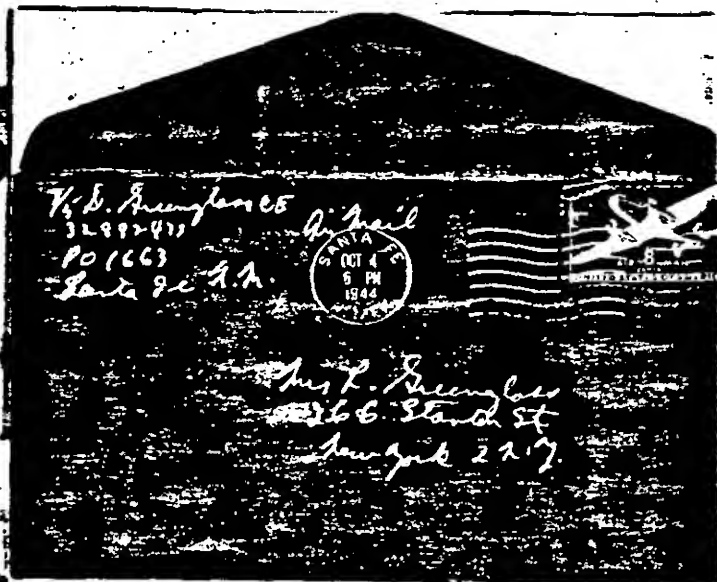 T/5 D. Greenglass CE
32882473
PO 1663
Santa Fe N.M.
Air Mail
SANTA FE
OCT 4
6 PM
1944
8
Mrs R. Greenglass
266 Stanton St
New York 2 N.Y.